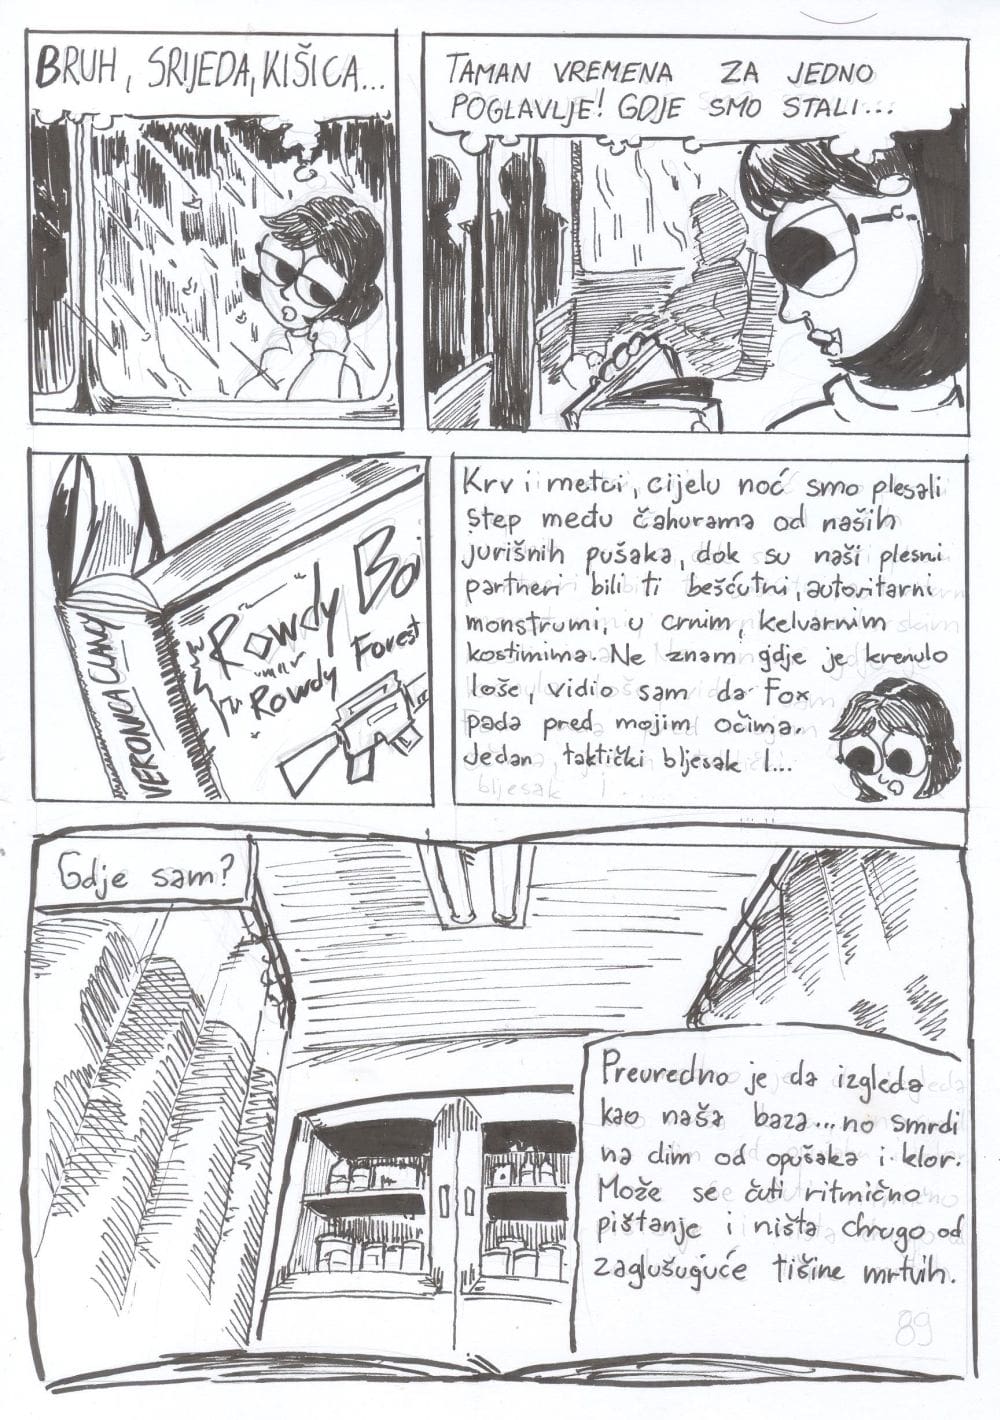 BRUH, SRIJEDA, KIŠICA...
TAMAN VREMENA ZA JEDNO
POGLAVLJE! GDJE SMO STALI...
VERONICA CLANCY
Rowdy Boi
Tv Rowdy Forest
Krv i metci, cijelu noć smo plesali
step među čahurama od naših
jurišnih pušaka, dok su naši plesni
partneri bili ti bešćutni, autoritarni
monstrumi, u crnim, kelvarnim
kostimima. Ne znam gdje je krenulo
loše, vidio sam da Fox
pada pred mojim očima.
Jedan taktički bljesak I...
Gdje sam?
Preuredno je da izgleda
kao naša baza...no smrdi
na dim od opušaka i klor.
Može se čuti ritmično
pištanje i ništa drugo od
zaglušuguće tišine mrtvih.
89